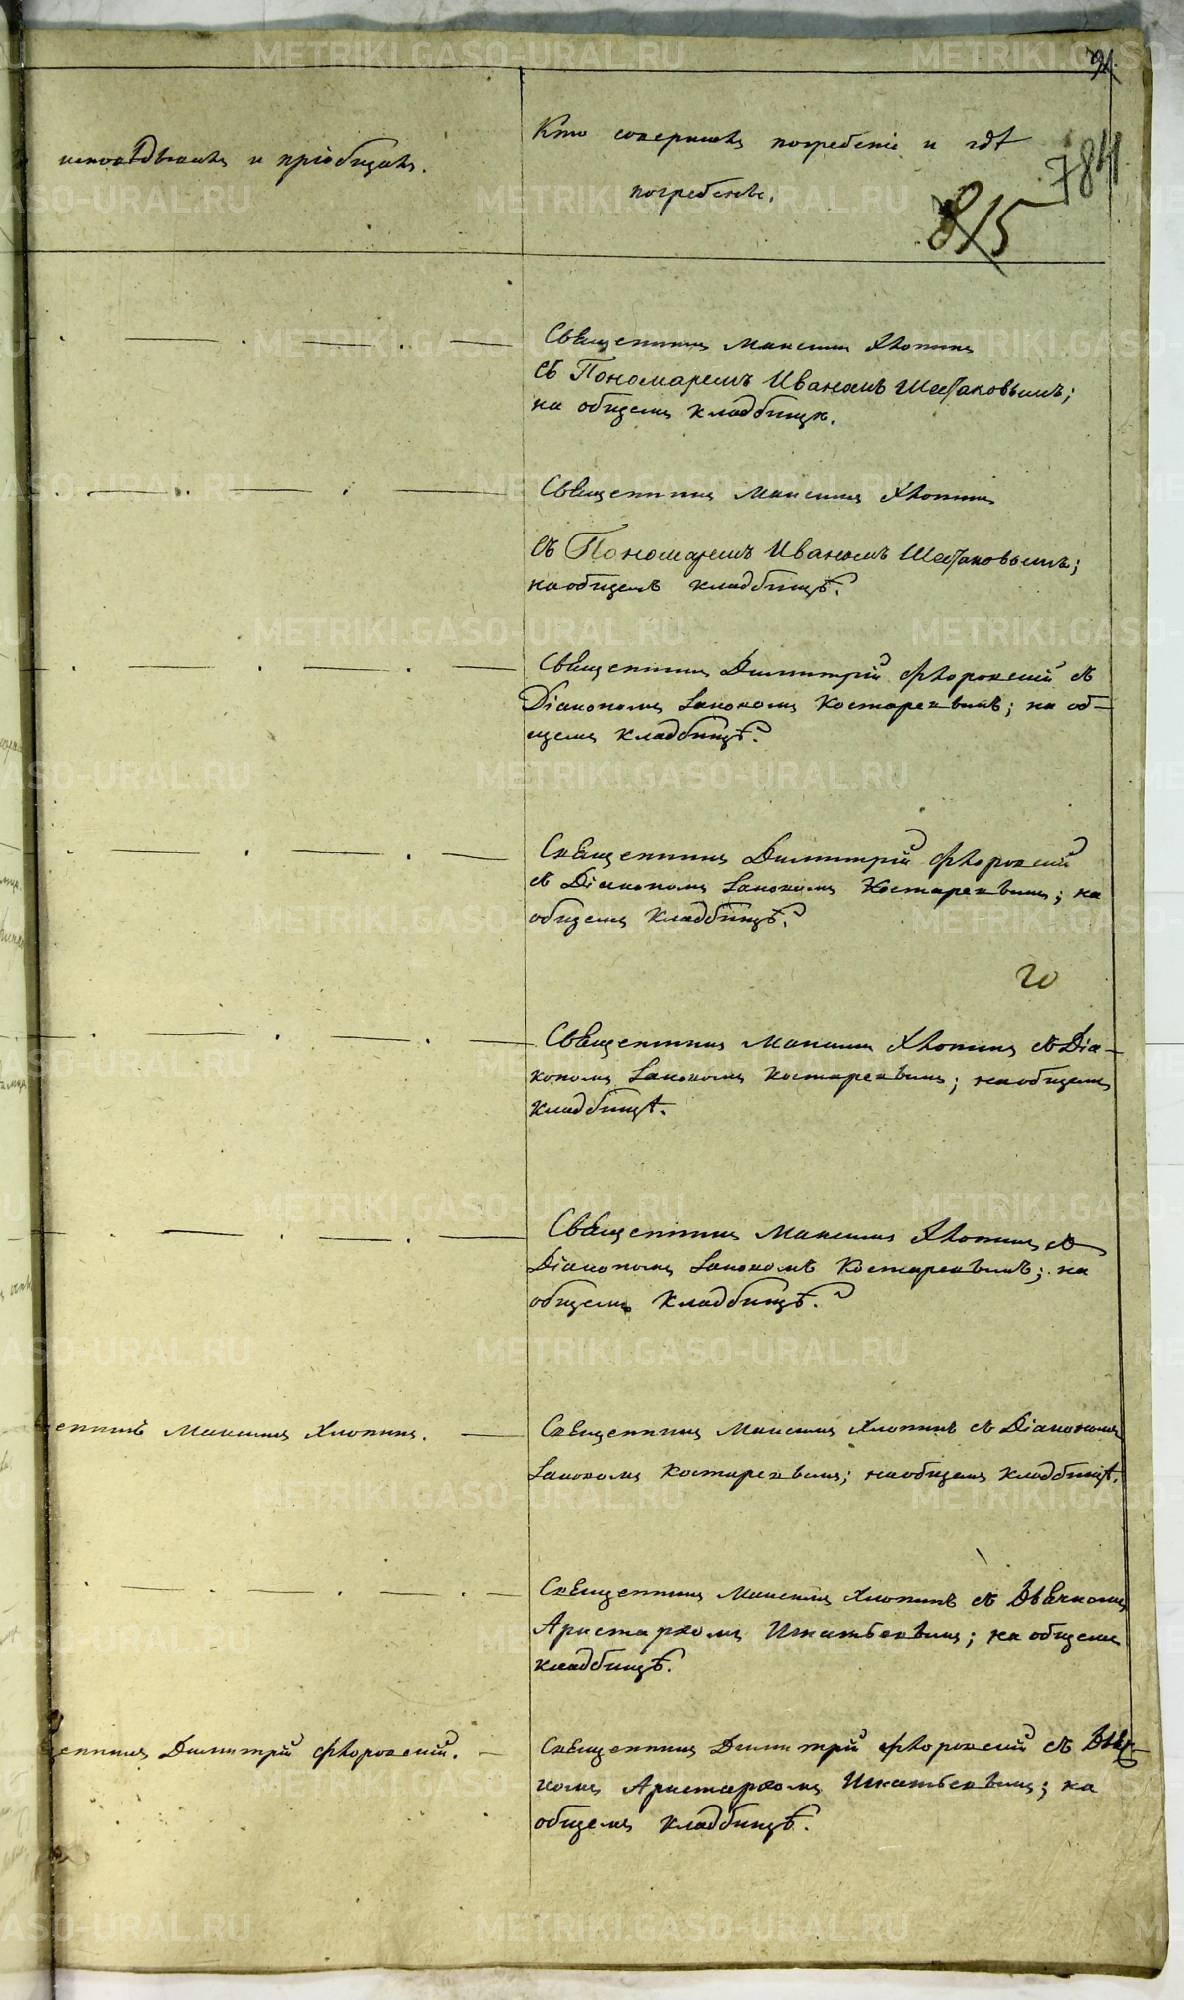 исповѣдывалъ и пріобщалъ.
Кто совершалъ погребеніе и гдѣ
погребенъ.
784
815
Священникъ Максимъ Хлопинъ
съ Пономаремъ Иваномъ Шестаковымъ;
на общемъ кладбищѣ.
Священникъ Максимъ Хлопинъ
съ Пономаремъ Иваномъ Шестаковымъ;
на общемъ кладбищѣ.
Священникъ Димитрій Флоровскій съ
Діакономъ Іаковомъ Костаревымъ; на об-
щемъ кладбищѣ.
Священникъ Димитрій Флоровскій
съ Діакономъ Іаковомъ Костаревымъ; на
общемъ кладбищѣ.
Священникъ Максимъ Хлопинъ съ Діа-
кономъ Іаковомъ Костаревымъ; на общемъ
кладбищѣ.
Священникъ Максимъ Хлопинъ съ
Діакономъ Іаковомъ Костаревымъ; на
общемъ кладбищѣ.
щенникъ Максимъ Хлопинъ.
Священникъ Максимъ Хлопинъ съ Діакономъ
Іаковомъ Костаревымъ; на общемъ кладбищѣ.
Священникъ Максимъ Хлопинъ съ Дьячкомъ
Аристархомъ; на общемъ
кладбищѣ.
щенникъ Димитрій Флоровскій.
Священникъ Димитрій Флоровскій съ Дьяч-
комъ Аристархомъ; на
общемъ кладбищѣ.
METRIKI.GASO-URAL.RU